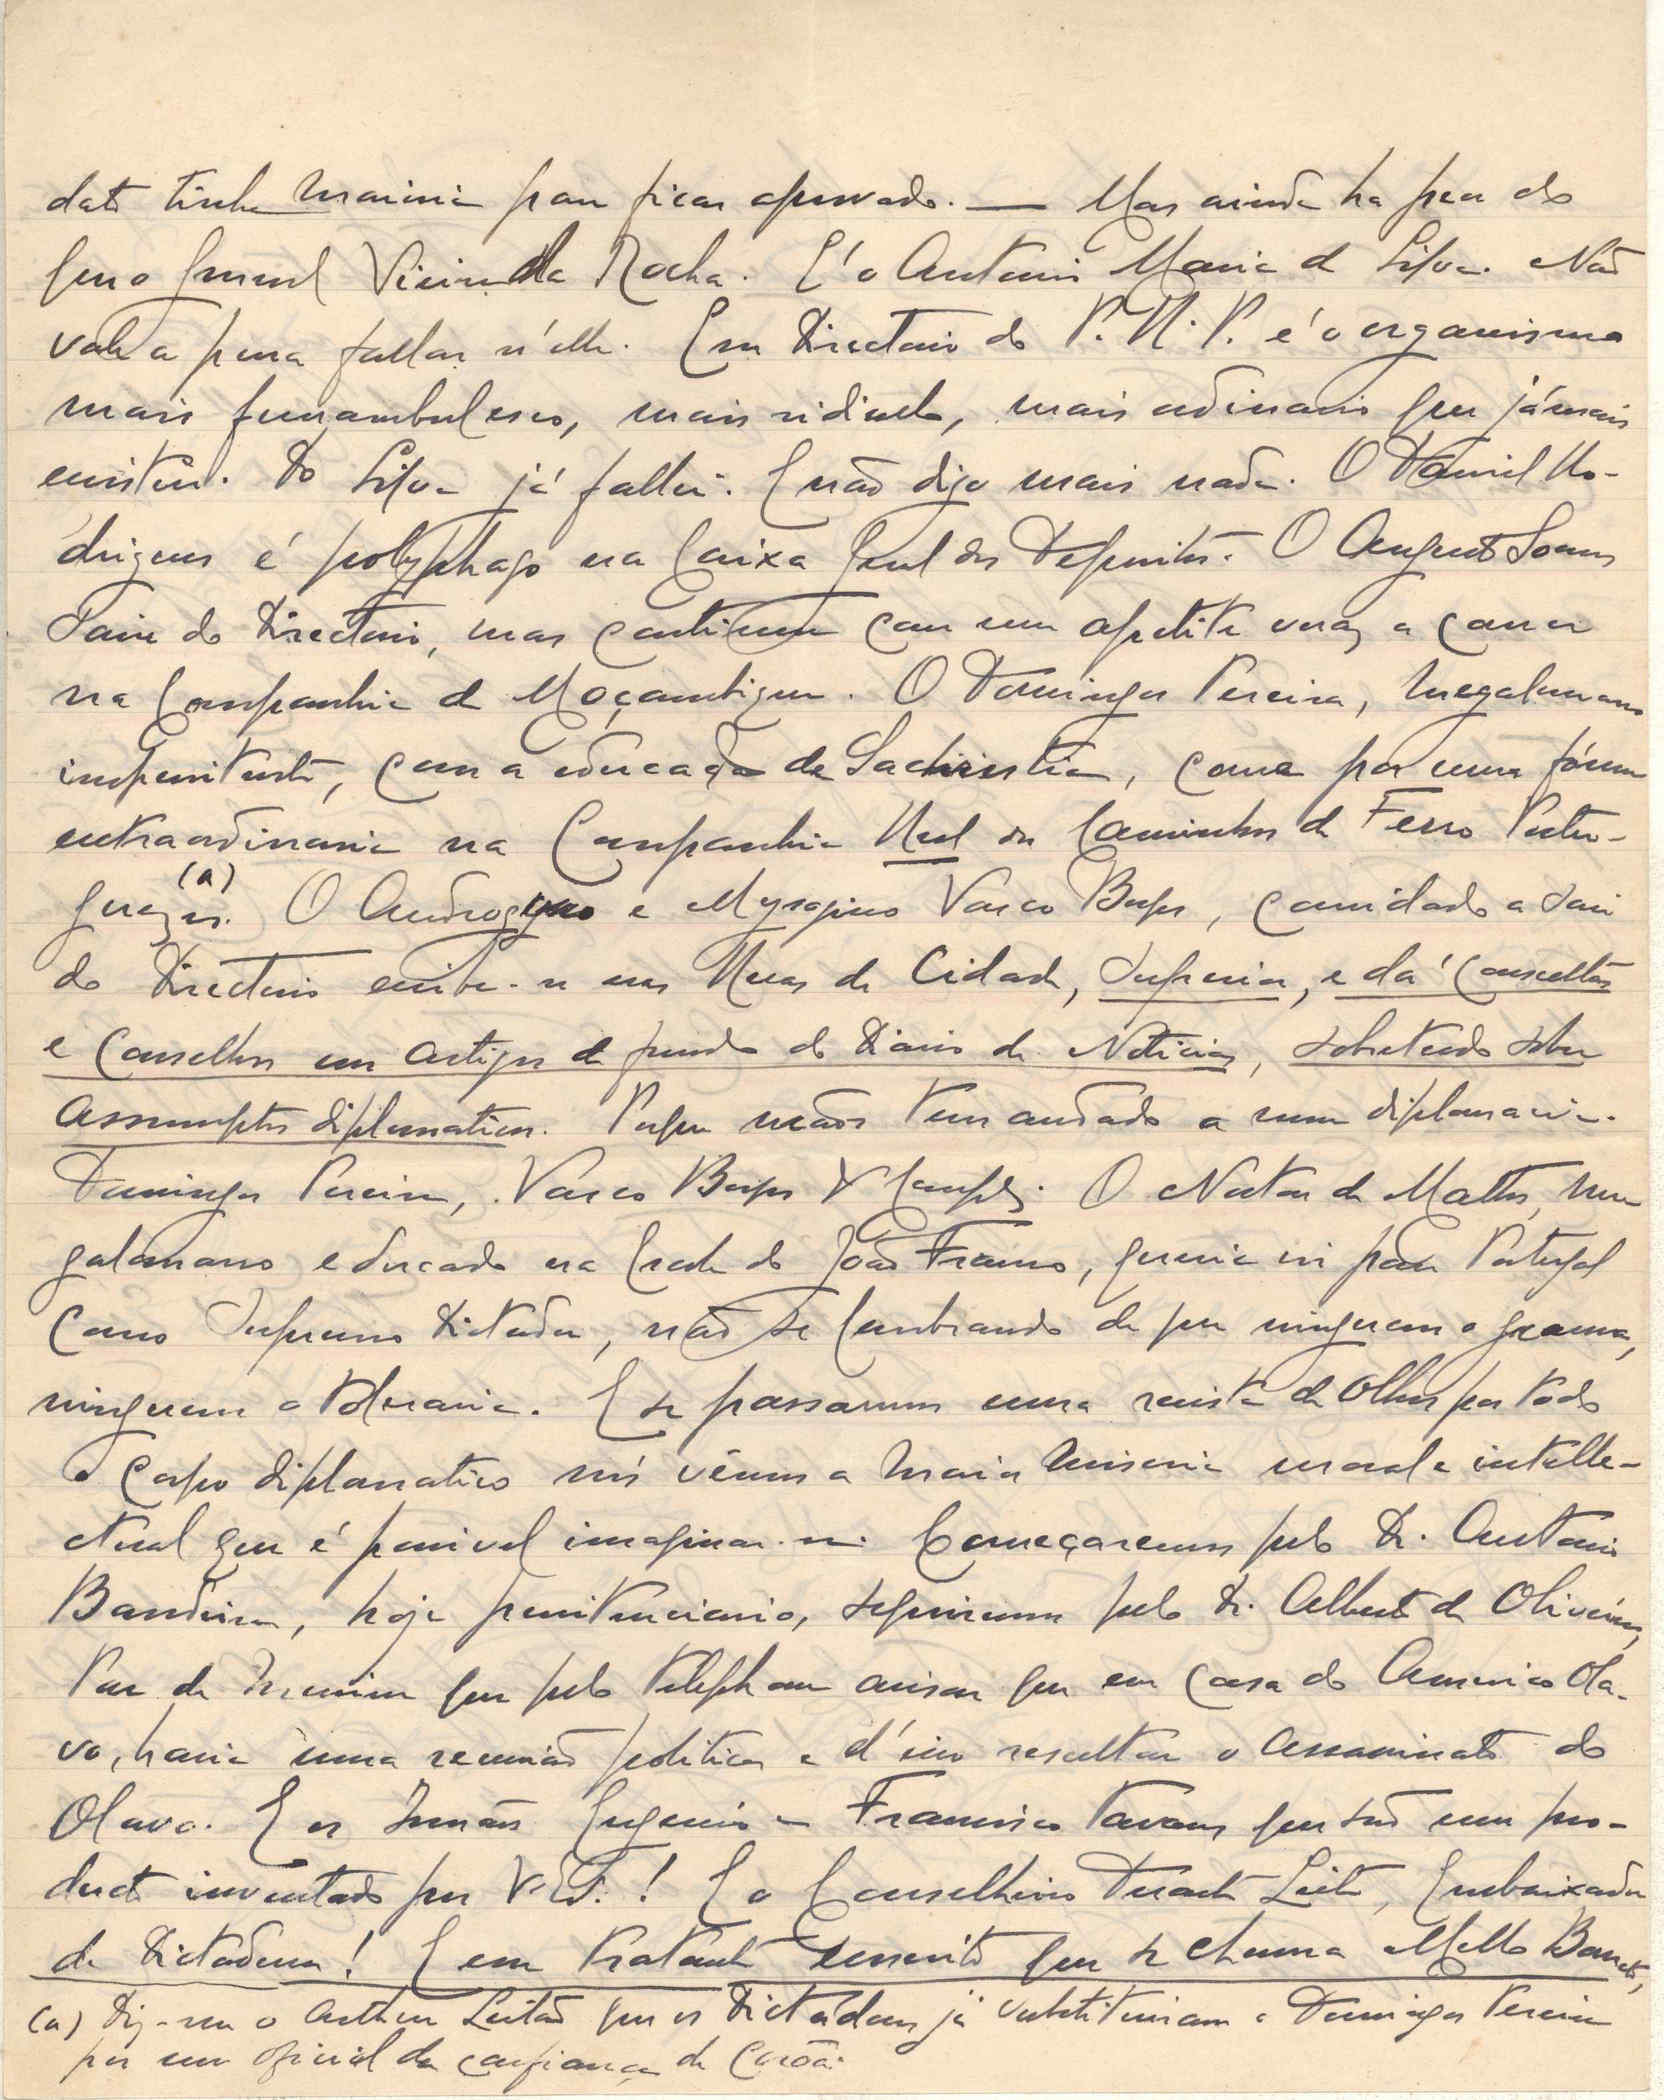 dato tinha maioria para ficar aprovado. — Mas ainda ha peor do
que o General Vieira da Rocha. É o Antonio Maria da Silva. Não
vale a pena fallar n'elle. Esse Directorio do P. R. P. é o organismo
mais funambulesco, mais ridiculo, mais ordinario que jámais
existiu. Do Silva já fallei. E não digo mais nada. O Daniel Ro-
drigues é polyphago na Caixa Geral dos Depositos. O Augusto Soares
saiu do Directorio, mas continua com um apetite voraz a comer
na Companhia de Moçambique. O Domingos Pereira, megalomano
impenitente, com a educação de Sachristia, come por uma fórma
extraordinaria na Companhia Real dos Caminhos de Ferro Portu-
guezes. (a) O Androgyno e Mysogino Vasco Borges, convidado a sair
do Directorio exibe-se nas Ruas da Cidade, superior, e dá consultas
e conselhos em artigos de fundo do Diario de Noticias, sobretudo sobre
assumptos diplomaticos. Por que mãos tem andado a nossa diplomacia.
Domingos Pereira, Vasco Borges & Comp.ª. O Norton de Mattos, me-
galomano educado na Escola do João Franco, queria vir para Portugal
como Supremo Dictador, não se lembrando de que ninguem o grama,
ninguem o toleraria. E se passarmos uma revista de olhos por todo
o Corpo diplomatico nós vêmos a maior miseria moral e intelle-
ctual que é possivel imaginar-se. Começaremos pelo Dr. Antonio
Bandeira, hoje penitenciario, seguiremos pelo Dr. Alberto de Oliveira,
que pelo telephone avisou que em casa do Americo Ola-
vo, havia uma reunião politica e d'isso resultou o assassinato do
Olavo. E os Irmãos Eugenio e Francisco Tavares que são um pro-
ducto inventado por V. Ex.ª! E o Conselheiro Duarte Leite, Embaixador
da Dictadura! E esse tratante que se chama Mello Barreto,
(a) Diz-me o Arthur Leitão que os Dictadores já substituiram o Domingos Pereira
por um oficial da confiança da Corôa.